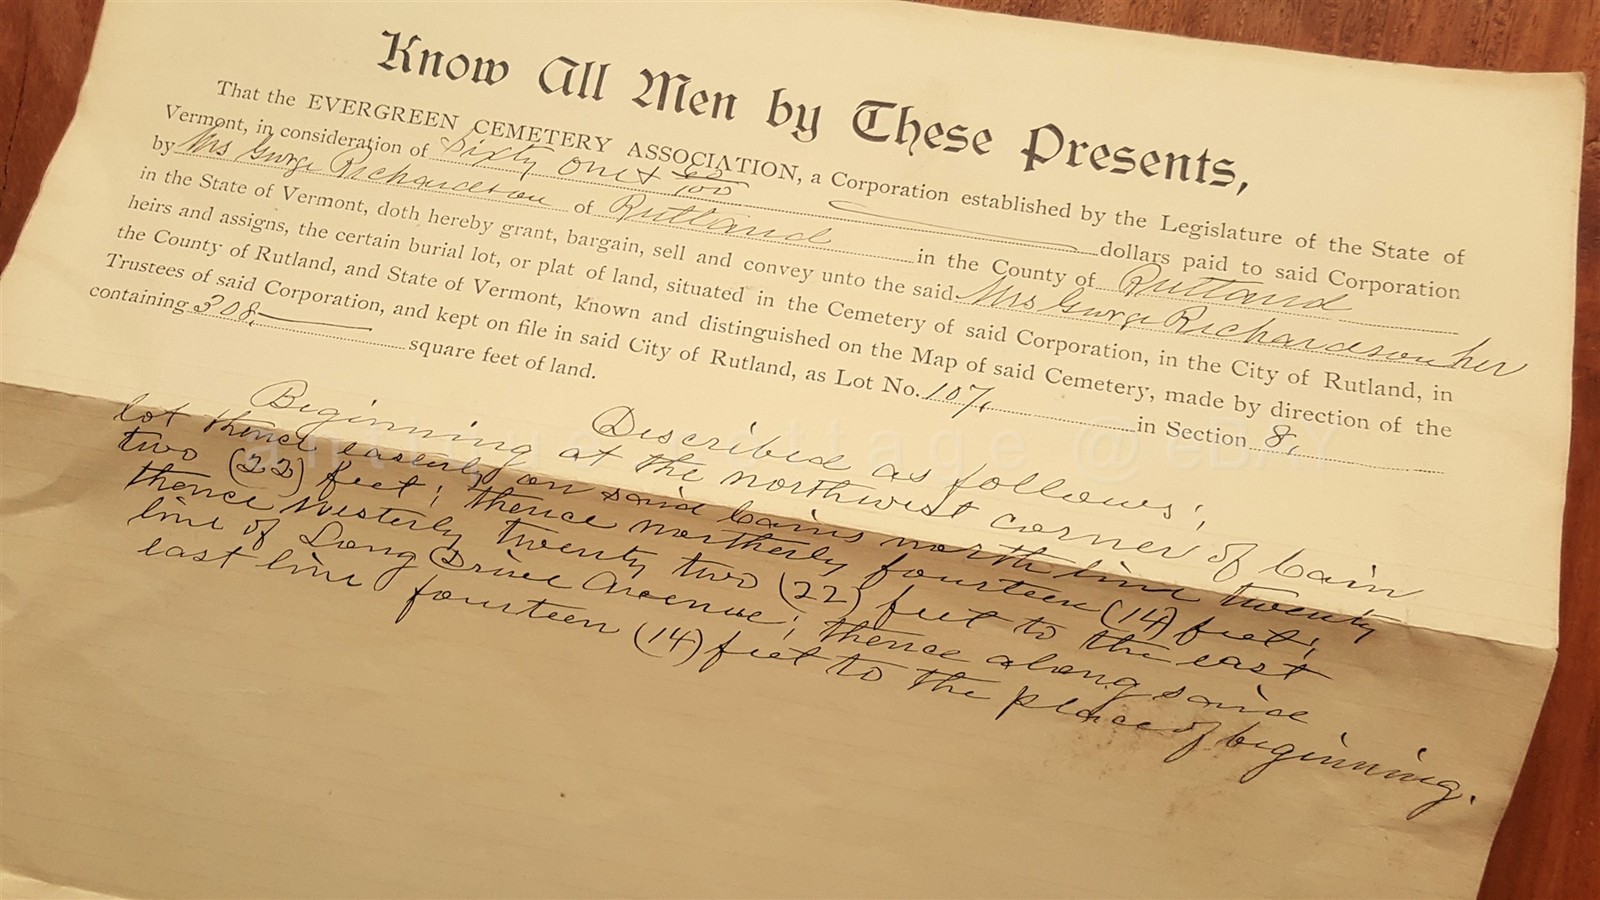 Know All Men by These Presents,
That the EVERGREEN CEMETERY ASSOCIATION, a Corporation established by the Legislature of the State of
Vermont, in consideration of Sixty One & 60/100 dollars paid to said Corporation
by Mrs George Richardson of Rutland in the County of Rutland
in the State of Vermont, doth hereby grant, bargain, sell and convey unto the said Mrs George Richardson her
heirs and assigns, the certain burial lot, or plat of land, situated in the Cemetery of said Corporation, in the City of Rutland, in
the County of Rutland, and State of Vermont, known and distinguished on the Map of said Cemetery, made by direction of the
Trustees of said Corporation, and kept on file in said City of Rutland, as Lot No. 107, in Section 8,
containing 308, square feet of land.
Described as follows;
Beginning at the northwest corner of Cain
lot thence easterly on said Cains north line twenty
two (22) feet; thence northerly fourteen (14) feet;
thence Westerly twenty two (22) feet to the east
line of Long Drive Avenue; thence along said
east line fourteen (14) feet to the place of beginning.